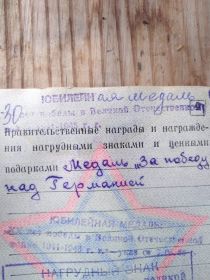 ЮБИЛЕЙная медаль
30 лет победы в Великой Отечественной
1941-1945 г.г.
Правительственные награды и награжде-
ния нагрудными знаками и ценными
подарками Медаль "За победу
над Германией
ЮБИЛЕЙНАЯ МЕДАЛЬ
лет победы в Великой Отечественной
1941-1945 г.г.
НАГРУДНЫЙ ЗНАК